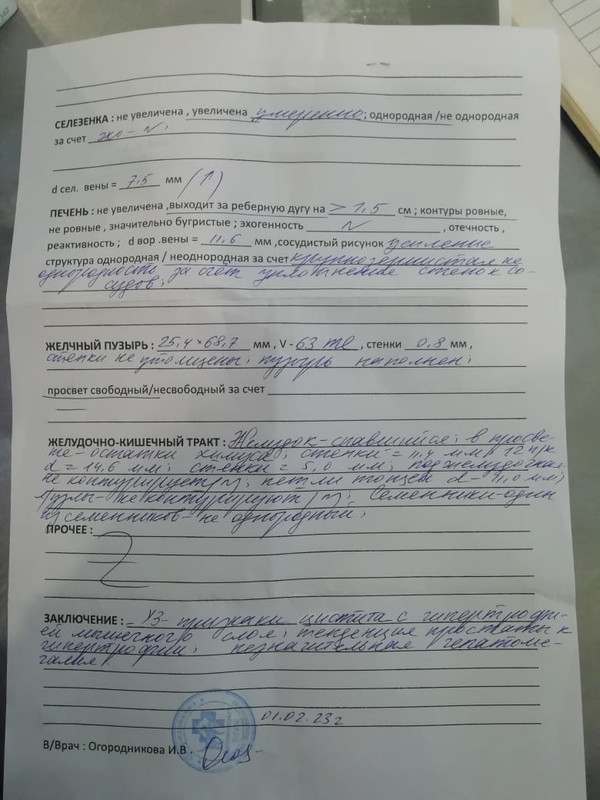 СЕЛЕЗЕНКА : не увеличена , увеличена умеренно ; однородная /не однородная
за счет эхо - N .
d сел. вены = 7,5 мм (↑)
ПЕЧЕНЬ : не увеличена ,выходит за реберную дугу на > 1,5 см ; контуры ровные,
не ровные , значительно бугристые ; эхогенность N , отечность ,
реактивность ; d вор .вены = 11,6 мм ,сосудистый рисунок усиление
структура однородная / неоднородная за счет крупнозернистая не
однородность за счет уплотнение стенок со-
судов;
ЖЕЛЧНЫЙ ПУЗЫРЬ : 25,4 × 68,7 мм , V - 63 ml , стенки 0,8 мм ,
стенки не утолщены; пузырь наполнен;
просвет свободный/несвободный за счет
ЖЕЛУДОЧНО-КИШЕЧНЫЙ ТРАКТ : Желудок - спавшийся; в просве-
те - остатки химуса; стенки = 11,4 мм; 12 п/к
d = 14,6 мм; стенки = 5,0 мм; поджелудочная
не контурирует; петли тощей d - 11,0 мм;
л/узлы - не контурируют; Семенники - один
из семенников - не однородный;
ПРОЧЕЕ :
ЗАКЛЮЧЕНИЕ : УЗ - признаки цистита с гипертрофи-
ей мышечного слоя; тенденция простаты к
гипертрофии; незначительная гепатоме-
галия
01.02.23г
В/Врач : Огородникова И.В .